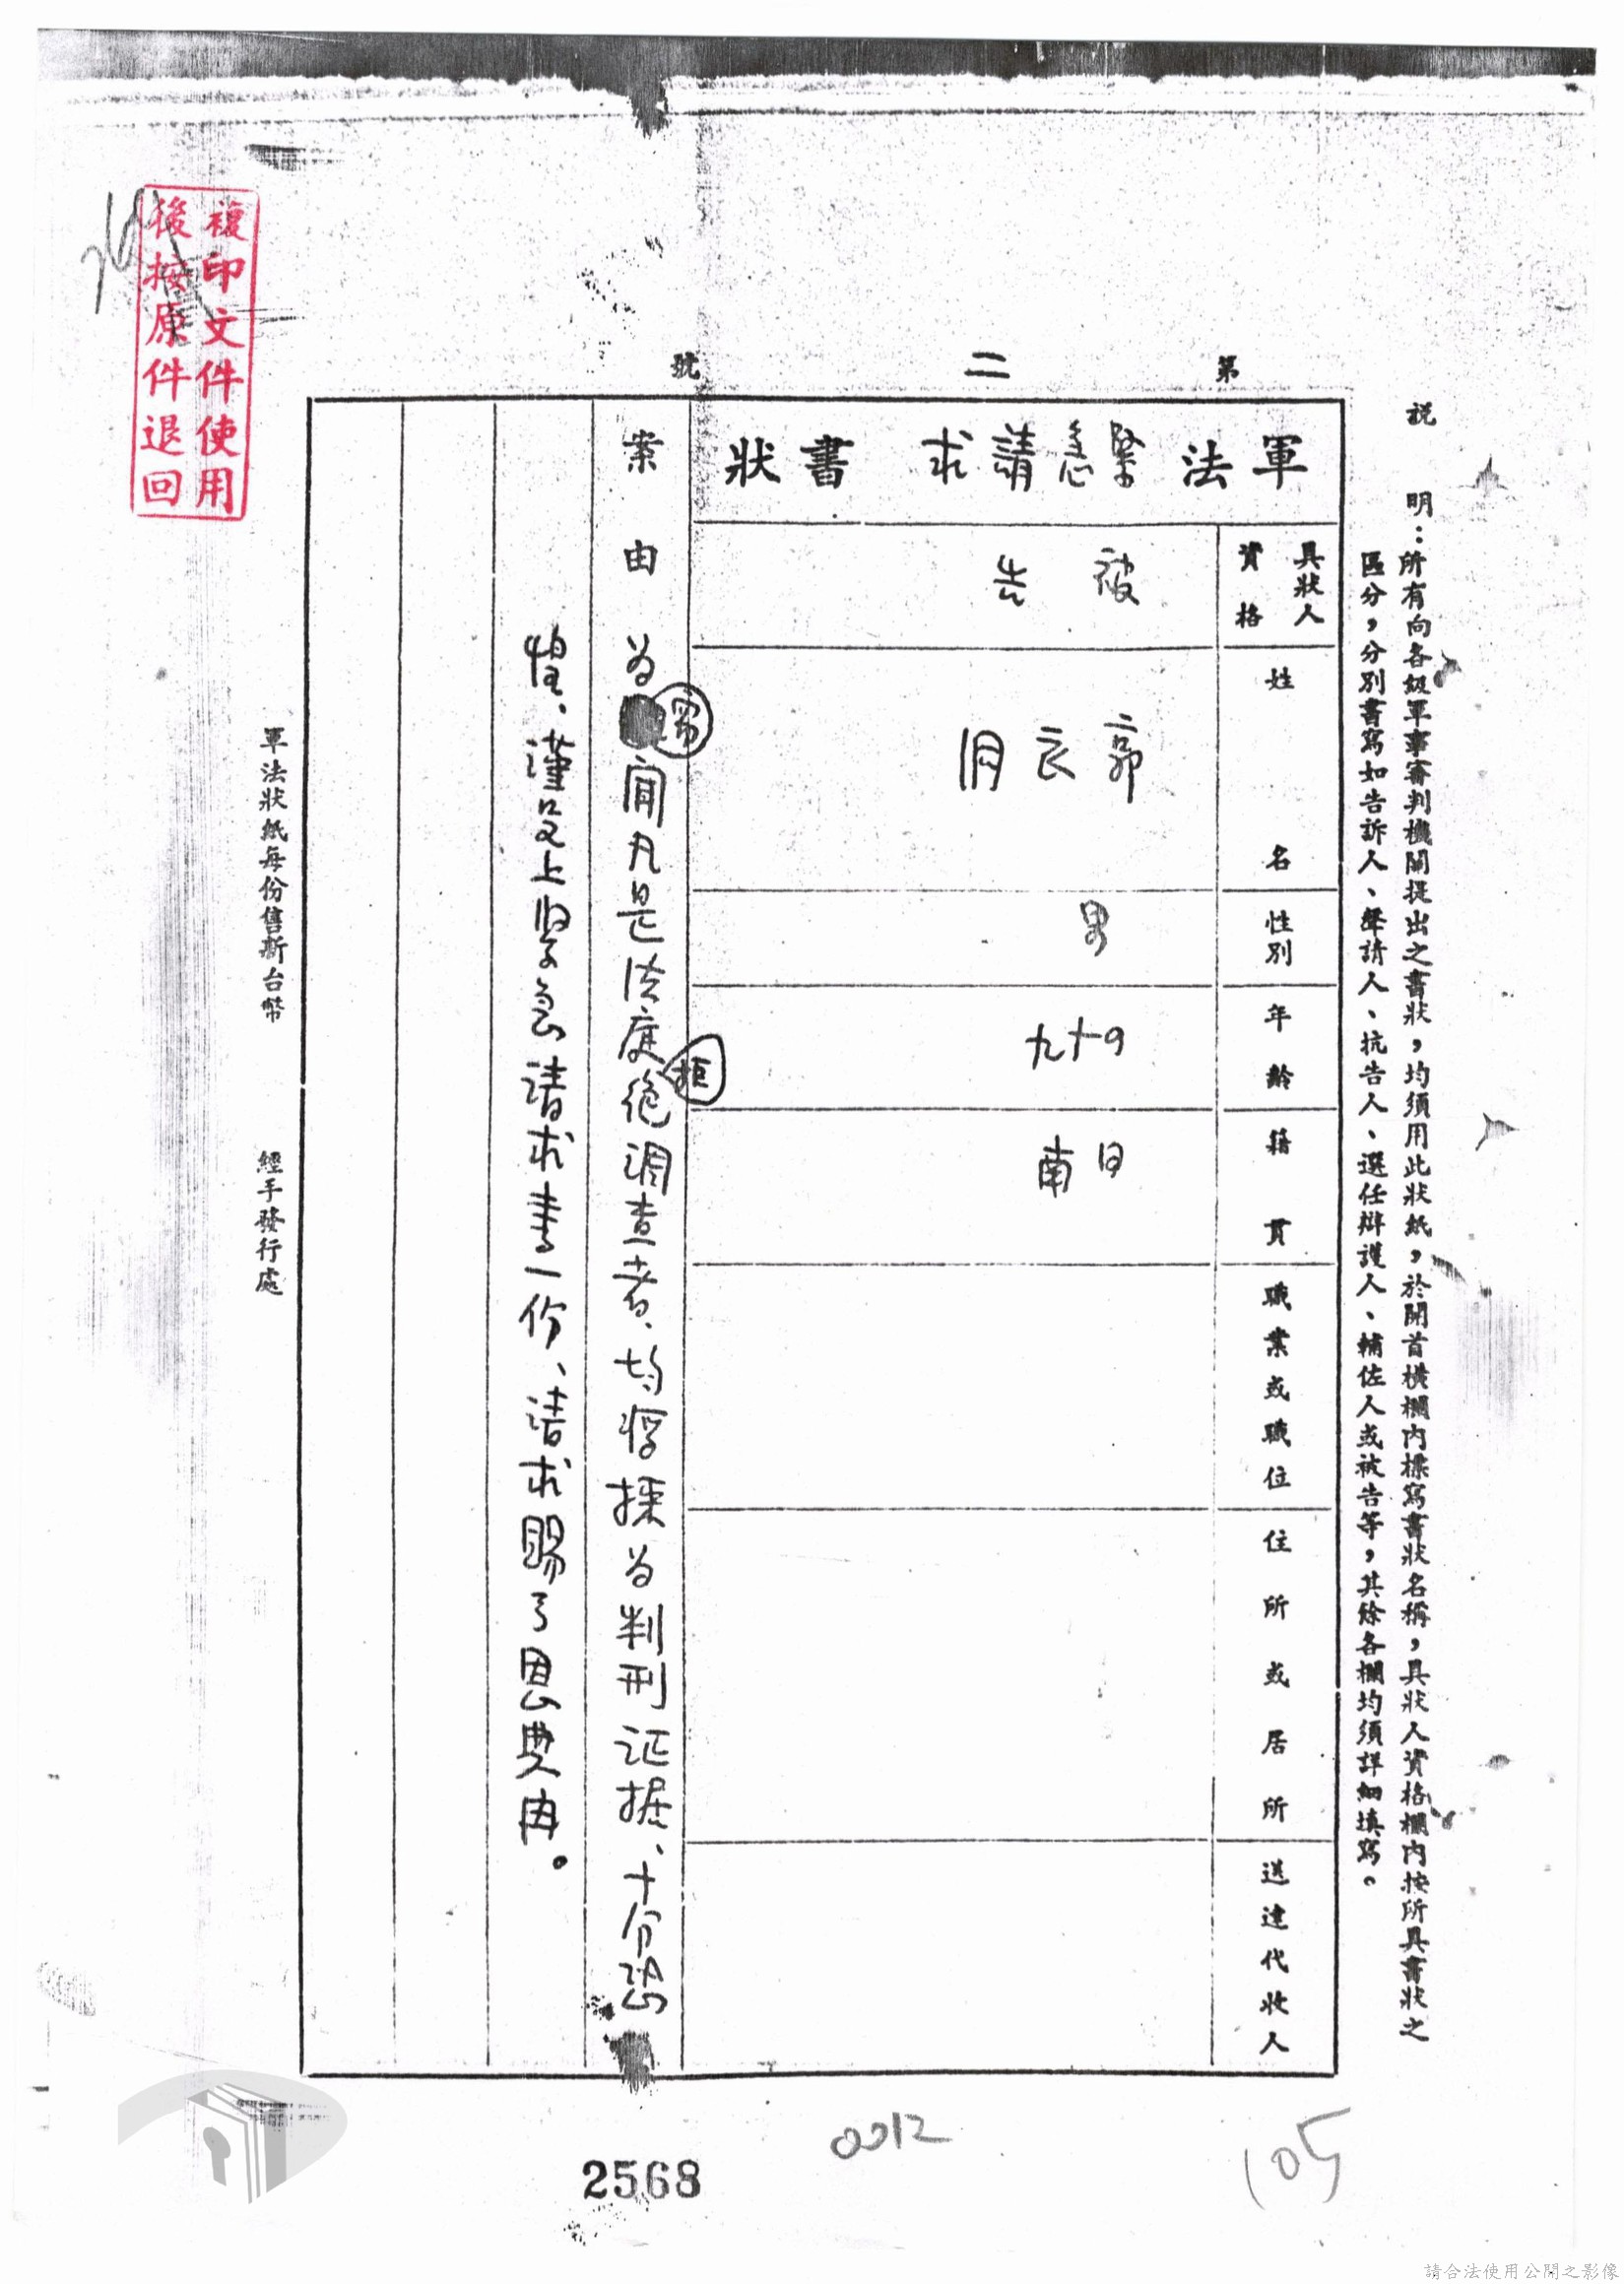 說明：所有向各級軍事審判機關提出之書狀，均須用此狀紙，於開首橫欄內標寫書狀名稱，具狀人資格欄內按所具書狀之
區分，分別書寫如告訴人、聲請人、抗告人、選任辯護人、輔佐人或被告等，其餘各欄均須詳細填寫。
第二號
軍法緊急請求書狀
具狀人資格
被告
姓名
郭衣洞
性別
男
年齡
四十九
籍貫
南
職業或職位
住所或居所
送達代收人
案由
為聞凡是法庭拒絕調查者、均將採為判刑证据、十分恐
惶、謹呈上紧急请求書一份、请求賜予恩典
軍法狀紙每份售新台幣
經手發行處
複印文件使用
後按原件退回
0012
105
2568
請合法使用公開之影像